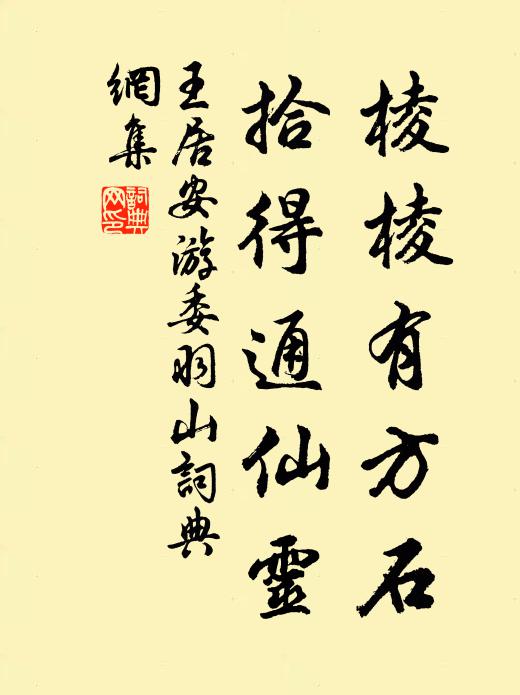 棱棱有方石
拾得通仙靈
王居安游委羽山詞典
網集
詞典
网印